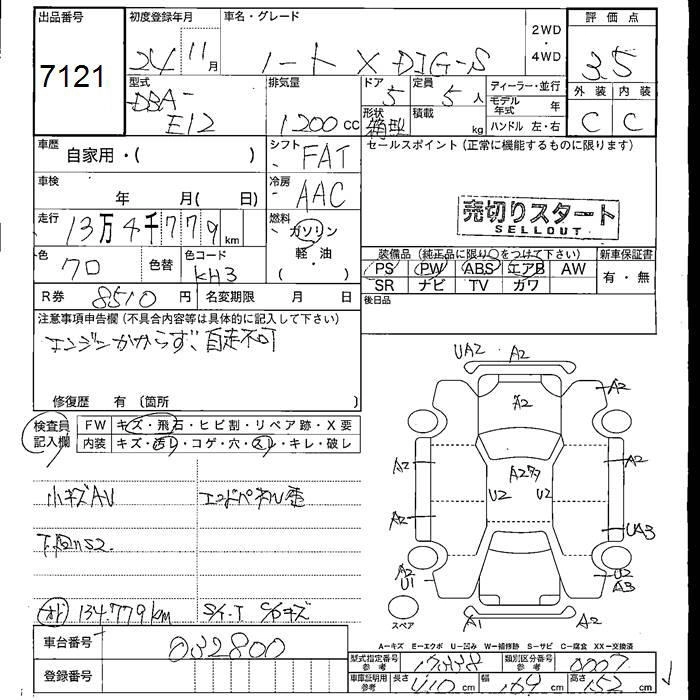 出品番号
7121
初度登録年月
24 11月
車名・グレード
ノート X DIG-S
2WD
・
4WD
評価点
3.5
外装 内装
C C
型式
DBA-
E12
排気量
1200cc
ドア 5
定員 5人
形状 箱型
積載 kg
ディーラー・並行
モデル年式 年
ハンドル 左・右
車歴
自家用・( )
シフト FAT
車検
年 月( 日)
冷房 AAC
走行
13万4千779km
燃料
ガソリン
軽・油
( )
色 クロ
色替
色コード
KH3
R券 8510円
名変期限 月 日
セールスポイント(正常に機能するものに限ります)
売切りスタート
SELLOUT
装備品(純正品に限り○をつけて下さい)
新車保証書
PS PW ABS エアB AW
SR ナビ TV カワ
有・無
後日品
注意事項申告欄(不具合内容等は具体的に記入して下さい)
エンジンかからず、自走不可
修復歴 有(箇所 )
検査員
記入欄
FW キズ・飛石・ヒビ割・リペア跡・X要
内装 キズ・汚レ・コゲ・穴・スレ・キレ・破レ
小キズAU
134.779km
車台番号
032800
登録番号
UA2 A2
A2
A2
A2
A2
A2
U2 U2
A2
UA3
A2
U1
U2
A3
A1 A2
スペア
A-キズ E-エクボ U-凹み W-補修跡 S-サビ C-腐食 XX-交換済
型式指定番号
参考
類別区分番号
参考
0007
車庫証明用
参考
長さ 410cm
幅 169cm
高さ 152cm